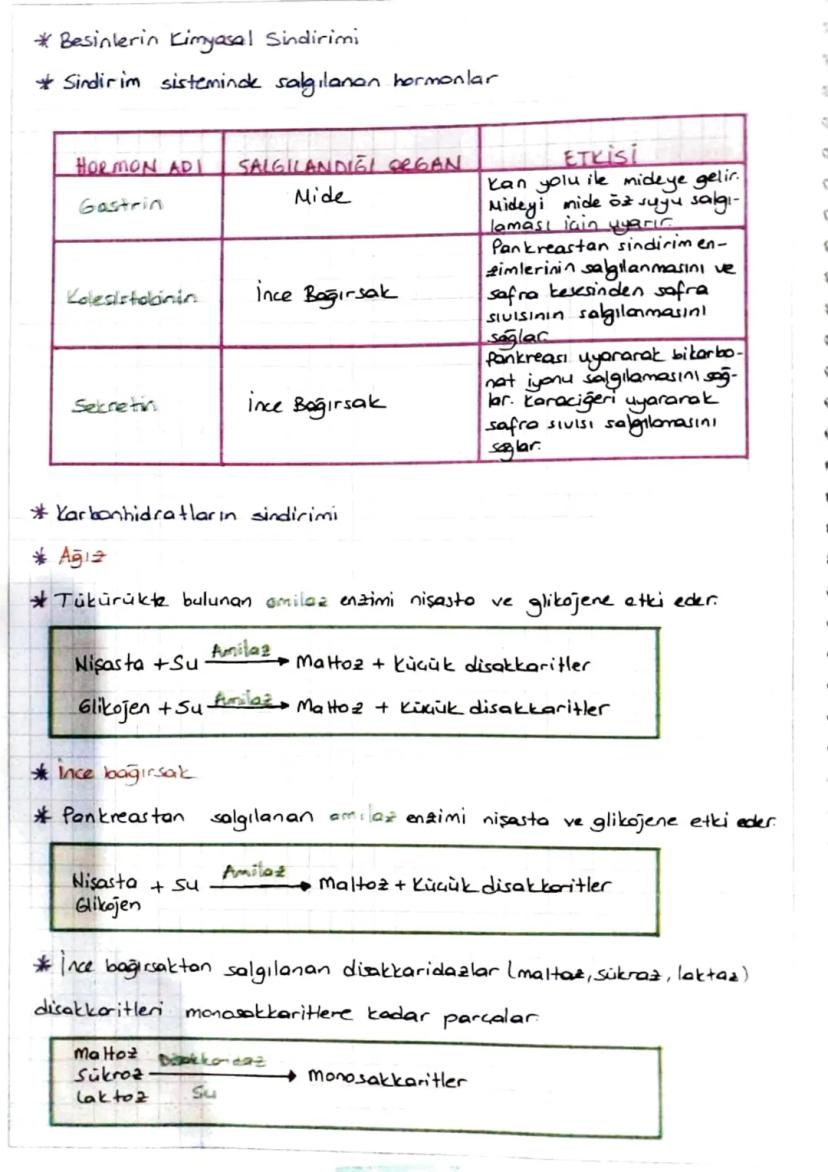 * Besinlerin Kimyasal Sindirimi
* Sindirim sisteminde salgılanan hormonlar
HORMON ADI SALGILANDIĞI ORGAN ETKİSİ
Gastrin Mide
Kan yolu ile mideye gelir.
Mideyi mide öz suyu salgı-
laması için uyarır.
Kolesistokinin İnce Bağırsak
Pankreastan sindirim en-
zimlerinin salgılanmasını ve
safra kesesinden safra
sıvısının salgılanmasını
sağlar.
Sekretin İnce Bağırsak
Pankreası uyararak bikarbo-
nat iyonu salgılamasını sağ-
lar. Karaciğeri uyararak
safra sıvısı salgılamasını
sağlar.
* Karbonhidratların sindirimi
* Ağız
* Tükürükte bulunan amilaz enzimi nişasta ve glikojene etki eder.
Nişasta + Su Amilaz → Maltoz + Küçük disakkaritler
Glikojen + Su Amilaz → Maltoz + Küçük disakkaritler
* İnce bağırsak
* Pankreastan salgılanan amilaz enzimi nişasta ve glikojene etki eder.
Nişasta + Su Amilaz → Maltoz + Küçük disakkaritler
Glikojen
* İnce bağırsaktan salgılanan disakkaridazlar (maltaz, sükraz, laktaz)
disakkaritleri monosakkaritlere kadar parçalar.
Maltoz
Sükroz Disakkaridaz → Monosakkaritler
Laktoz Su